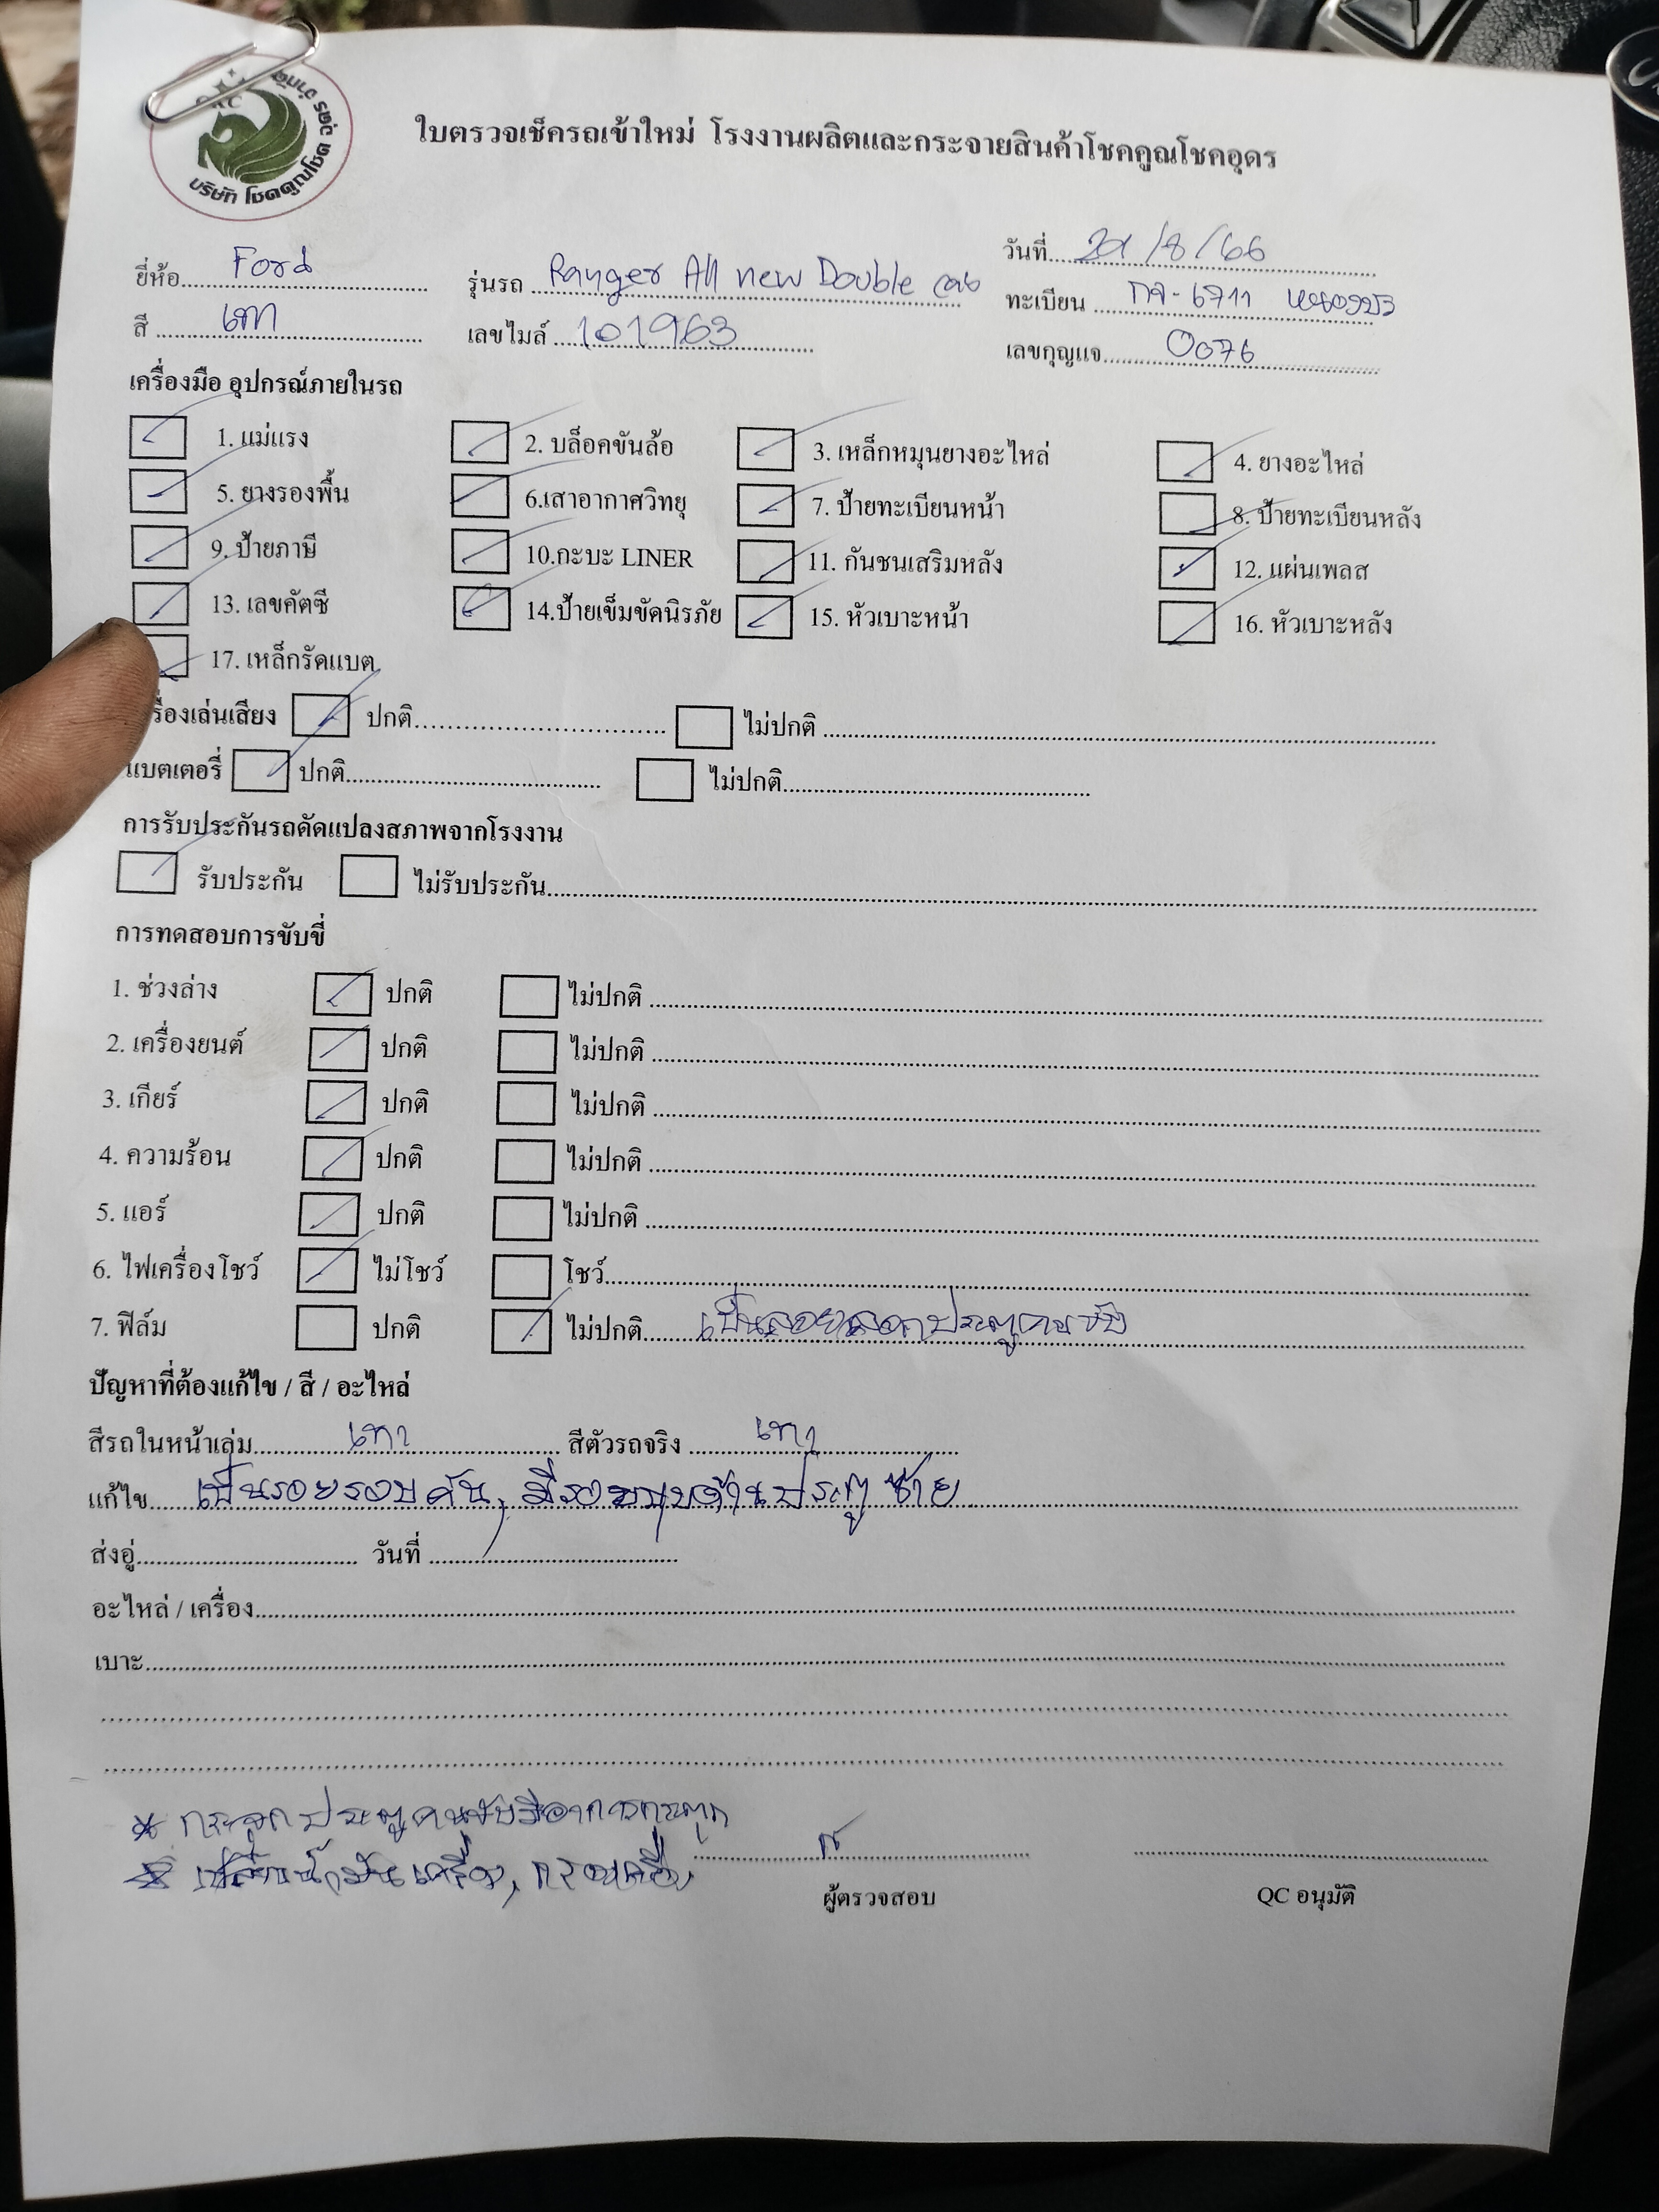 บริษัท โชคคูณโชค อุดร จำกัด
ใบตรวจเช็ครถเข้าใหม่ โรงงานผลิตและกระจายสินค้าโชคคูณโชคอุดร
วันที่ /8/66
ยี่ห้อ Ford รุ่นรถ Ranger All new Double cab ทะเบียน กจ-6711
สี เทา เลขไมล์ 101963 เลขกุญแจ 0076
เครื่องมือ อุปกรณ์ภายในรถ
1. แม่แรง 2. บล็อคขันล้อ 3. เหล็กหมุนยางอะไหล่ 4. ยางอะไหล่
5. ยางรองพื้น 6.เสาอากาศวิทยุ 7. ป้ายทะเบียนหน้า 8. ป้ายทะเบียนหลัง
9. ป้ายภาษี 10.กะบะ LINER 11. กันชนเสริมหลัง 12. แผ่นเพลส
13. เลขคัตซี 14.ป้ายเข็มขัดนิรภัย 15. หัวเบาะหน้า 16. หัวเบาะหลัง
17. เหล็กรัดแบต
รื่องเล่นเสียง ปกติ ไม่ปกติ
แบตเตอรี่ ปกติ ไม่ปกติ
การรับประกันรถดัดแปลงสภาพจากโรงงาน
รับประกัน ไม่รับประกัน
การทดสอบการขับขี่
1. ช่วงล่าง ปกติ ไม่ปกติ
2. เครื่องยนต์ ปกติ ไม่ปกติ
3. เกียร์ ปกติ ไม่ปกติ
4. ความร้อน ปกติ ไม่ปกติ
5. แอร์ ปกติ ไม่ปกติ
6. ไฟเครื่องโชว์ ไม่โชว์ โชว์
7. ฟิล์ม ปกติ ไม่ปกติ ประตูคนขับ
ปัญหาที่ต้องแก้ไข / สี / อะไหล่
สีรถในหน้าเล่ม เทา สีตัวรถจริง เทา
แก้ไข เป็นรอยรอบคัน, มีรอยบุบด้านประตูซ้าย
ส่งอู่ วันที่
อะไหล่ / เครื่อง
เบาะ
* กระจกประตูคนขับมีอาการกระตุก
* เปลี่ยนน้ำมันเครื่อง, กรองเครื่อง
ผู้ตรวจสอบ QC อนุมัติ